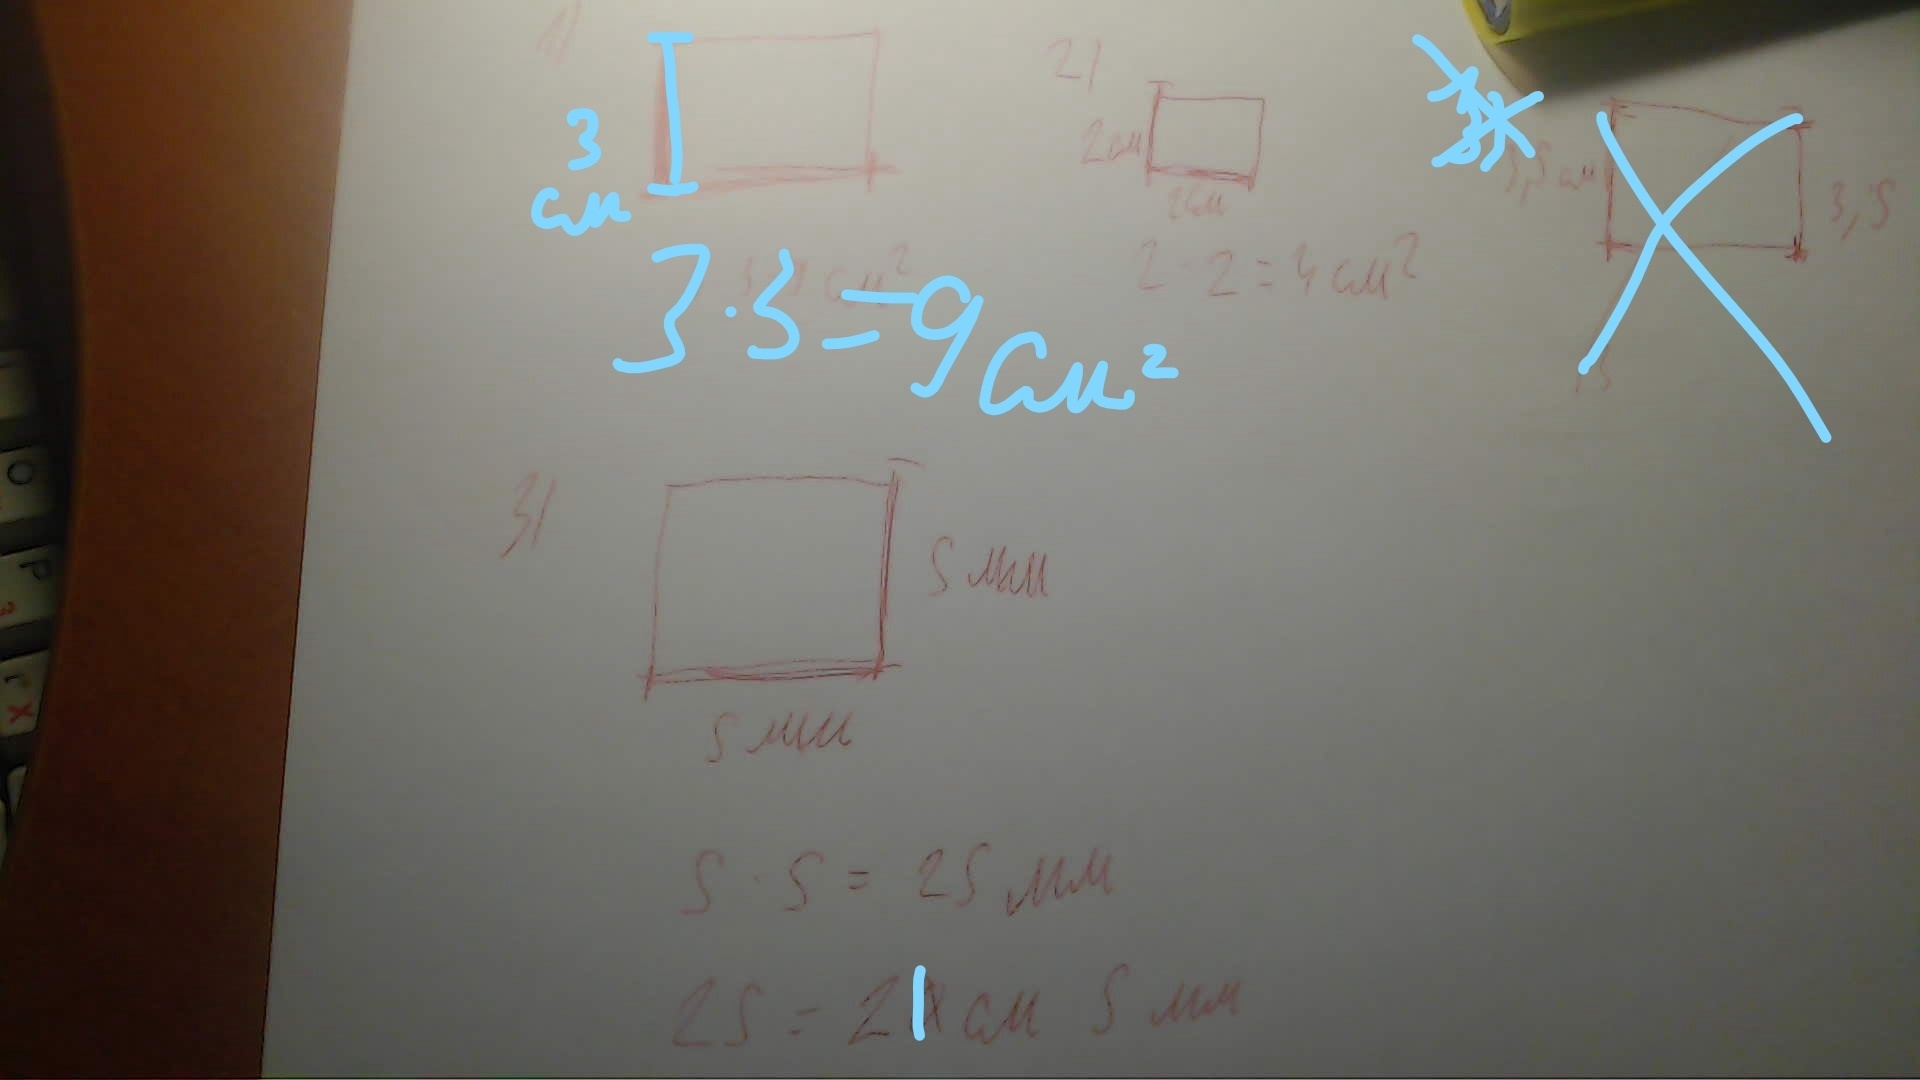 1)
3
см
3 · 3 = 9 см²
2)
2см
2см
2 · 2 = 4 см²
3,5
3)
5 мм
5 мм
5 · 5 = 25 мм
25 = 2 см 5 мм